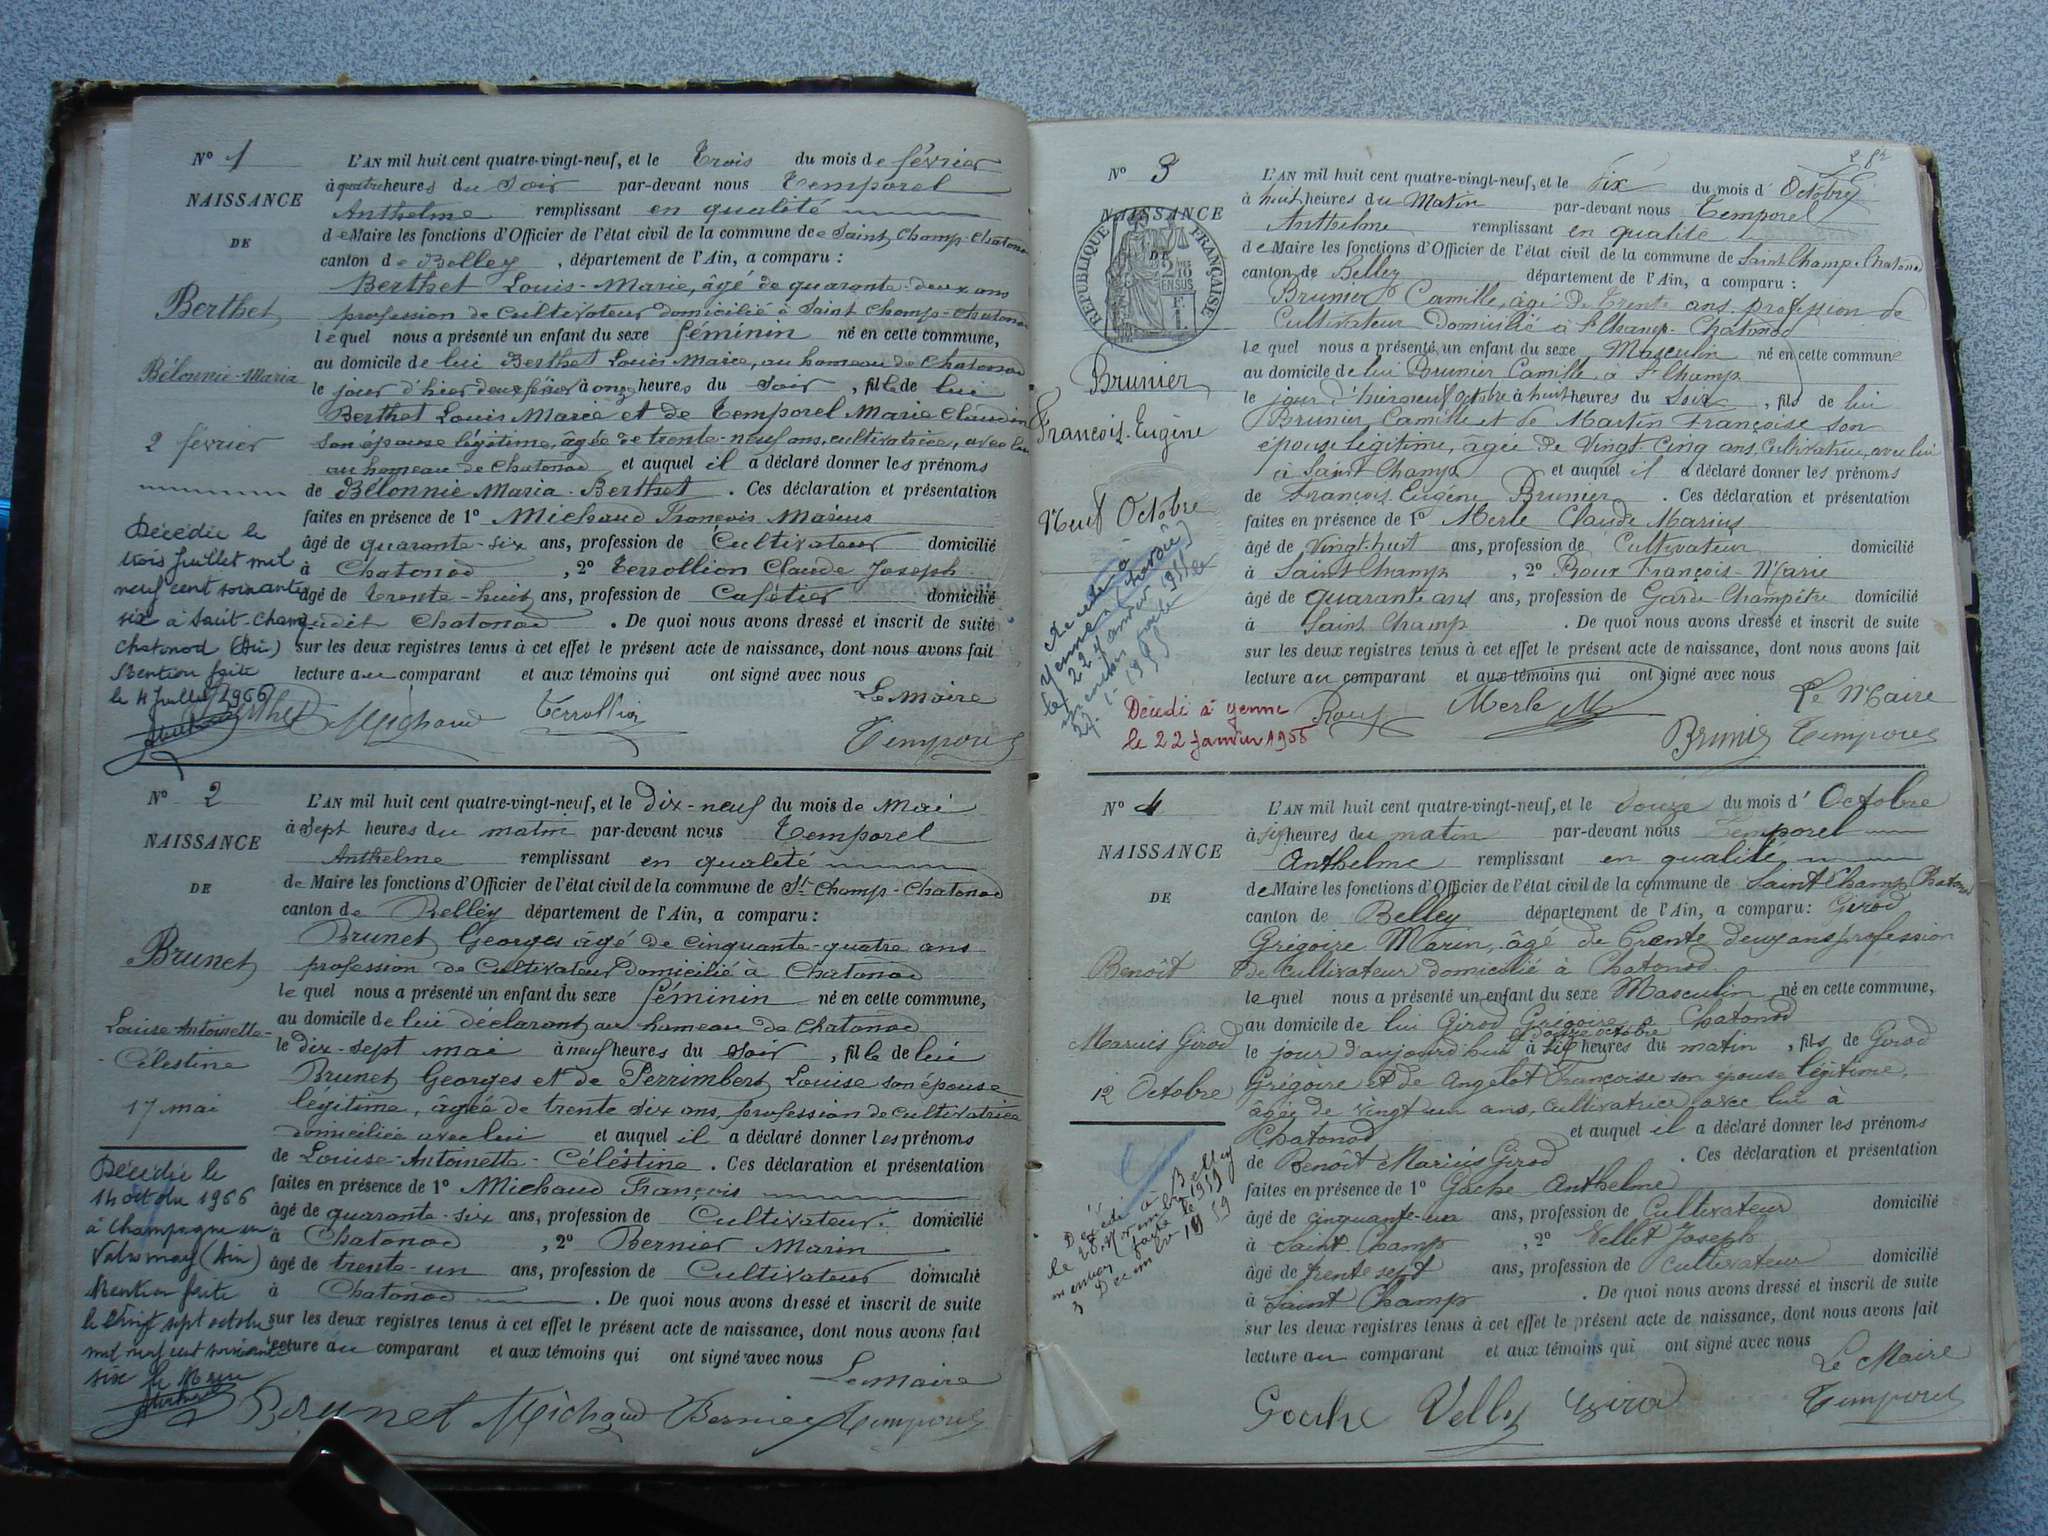 N° 1
NAISSANCE
DE
Berthet
Bélonnie-Maria
2 février
Décédée le
trois Juillet mil
neuf cent soixante
six à Saint-Champ
Chatonod (Ain)
Mention faite
le 4 Juillet 1966
L'AN mil huit cent quatre-vingt-neuf, et le Trois du mois de février
à quatre heures du Soir par-devant nous Temporel
Anthelme remplissant en qualité
de Maire les fonctions d'Officier de l'état civil de la commune de Saint Champ-Chatonod
canton de Belley, département de l'Ain, a comparu :
Berthet Louis-Marie, âgé de quarante-deux ans
profession de Cultivateur domicilié à Saint Champ-Chatonod
lequel nous a présenté un enfant du sexe féminin né en cette commune,
au domicile de lui Berthet Louis Marie, au hameau de Chatonod
le jour d'hier deux février à onze heures du Soir, fille de lui
Berthet Louis Marie et de Temporel Marie Claudine
son épouse légitime, âgée de trente-neuf ans, cultivatrice, avec lui
au hameau de Chatonod et auquel il a déclaré donner les prénoms
de Bélonnie Maria-Berthet. Ces déclaration et présentation
faites en présence de 1° Michaud François Marius
âgé de quarante-six ans, profession de Cultivateur domicilié
à Chatonod, 2° Terrollion Claude Joseph
âgé de Trente-huit ans, profession de Cafétier domicilié
audit Chatonod. De quoi nous avons dressé et inscrit de suite
sur les deux registres tenus à cet effet le présent acte de naissance, dont nous avons fait
lecture au comparant et aux témoins qui ont signé avec nous
Le Maire
Berthet Michaud Terrollion Temporel
N° 2
NAISSANCE
DE
Brunet
Louise-Antoinette-
Célestine
17 mai
Décédée le
14 octobre 1966
à Champagne en
Valromey (Ain)
Mention faite
le vingt sept octobre
mil neuf cent soixante
six le Maire
L'AN mil huit cent quatre-vingt-neuf, et le dix-neuf du mois de Mai
à Sept heures du matin par-devant nous Temporel
Anthelme remplissant en qualité
de Maire les fonctions d'Officier de l'état civil de la commune de St Champ-Chatonod
canton de Belley département de l'Ain, a comparu :
Brunet Georges âgé de cinquante-quatre ans
profession de Cultivateur domicilié à Chatonod
lequel nous a présenté un enfant du sexe féminin né en cette commune,
au domicile de lui déclarant au hameau de Chatonod
le dix-sept mai à neuf heures du soir, fille de lui
Brunet Georges et de Perrimbert Louise son épouse
légitime, âgée de trente six ans, profession de cultivatrice
domiciliée avec lui et auquel il a déclaré donner les prénoms
de Louise-Antoinette-Célestine. Ces déclaration et présentation
faites en présence de 1° Michaud François
âgé de quarante-six ans, profession de Cultivateur domicilié
à Chatonod, 2° Bernier Marin
âgé de trente-un ans, profession de Cultivateur domicilié
à Chatonod. De quoi nous avons dressé et inscrit de suite
sur les deux registres tenus à cet effet le présent acte de naissance, dont nous avons fait
lecture au comparant et aux témoins qui ont signé avec nous
Le Maire
Brunet Michaud Bernier Temporel
N° 3
NAISSANCE
DE
RÉPUBLIQUE FRANÇAISE
Brunier
François-Eugène
Neuf Octobre
Décédé à Yenne
le 22 janvier 1955
L'AN mil huit cent quatre-vingt-neuf, et le dix du mois d'Octobre
à huit heures du Matin par-devant nous Temporel
Anthelme remplissant en qualité
de Maire les fonctions d'Officier de l'état civil de la commune de Saint Champ-Chatonod
canton de Belley département de l'Ain, a comparu :
Brunier Camille, âgé de Trente ans profession de
Cultivateur Domicilié à St Champ-Chatonod
lequel nous a présenté un enfant du sexe Masculin né en cette commune
au domicile de lui Brunier Camille à St Champ
le jour d'hier neuf octobre à huit heures du Soir, fils de lui
Brunier Camille et de Martin Françoise son
épouse légitime, âgée de Vingt-Cinq ans, Cultivatrice, avec lui
à Saint Champ et auquel il a déclaré donner les prénoms
de François Eugène Brunier. Ces déclaration et présentation
faites en présence de 1° Merle Claude Marius
âgé de Vingt-huit ans, profession de Cultivateur domicilié
à Saint Champ, 2° Roux François-Marie
âgé de quarante ans ans, profession de Garde Champêtre domicilié
à Saint Champ. De quoi nous avons dressé et inscrit de suite
sur les deux registres tenus à cet effet le présent acte de naissance, dont nous avons fait
lecture au comparant et aux témoins qui ont signé avec nous
Le Maire
Roux Merle M Brunier Temporel
N° 4
NAISSANCE
DE
Benoît
Marius Girod
12 Octobre
Décédé à Belley
L'AN mil huit cent quatre-vingt-neuf, et le douze du mois d'Octobre
à six heures du matin par-devant nous Temporel
Anthelme remplissant en qualité
de Maire les fonctions d'Officier de l'état civil de la commune de Saint Champ Chatonod
canton de Belley département de l'Ain, a comparu: Girod
Grégoire Marin, âgé de Trente deux ans profession
de cultivateur domicilié à Chatonod
lequel nous a présenté un enfant du sexe Masculin né en cette commune,
au domicile de lui Girod Grégoire à Chatonod
le jour d'aujourd'hui douze octobre à six heures du matin, fils de Girod
Grégoire et de Angelot Françoise son épouse légitime,
âgée de vingt un ans, cultivatrice avec lui à
Chatonod et auquel il a déclaré donner les prénoms
de Benoît Marius Girod. Ces déclaration et présentation
faites en présence de 1° Gache Anthelme
âgé de cinquante-un ans, profession de Cultivateur domicilié
à Saint Champ, 2° Vellet Joseph
âgé de trente sept ans, profession de cultivateur domicilié
à Saint Champ. De quoi nous avons dressé et inscrit de suite
sur les deux registres tenus à cet effet le présent acte de naissance, dont nous avons fait
lecture au comparant et aux témoins qui ont signé avec nous
Le Maire
Gache Vellet Girod Temporel